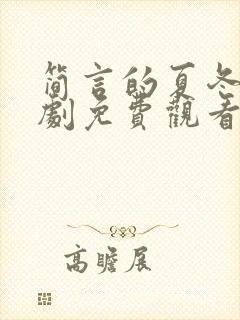 简言的夏冬
劇免費觀看
高瞻展